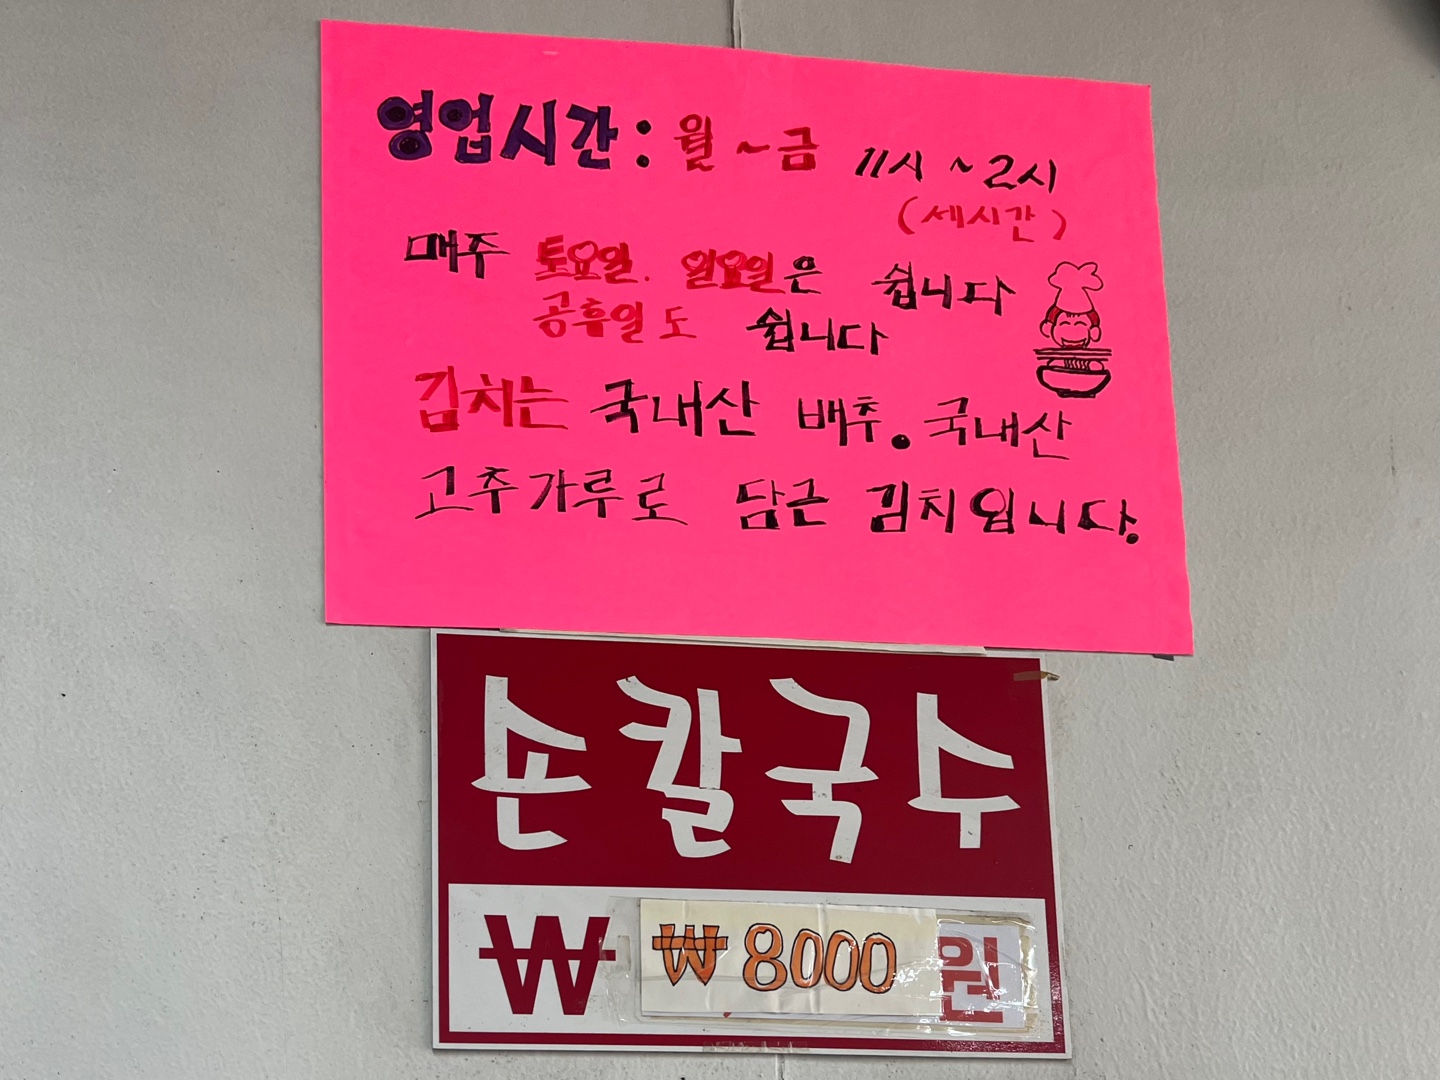 영업시간 : 월 ~ 금 11시 ~ 2시
(세시간)
매주 토요일. 일요일은 쉽니다
공휴일도 쉽니다
김치는 국내산 배추. 국내산
고추가루로 담근 김치입니다.
손칼국수
₩ ₩8000 원